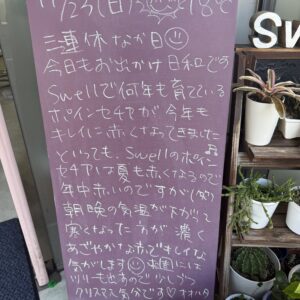 11/23(日) 18℃
三連休なか日
今日もお出かけ日和です
Swellで何年も育てている
ポインセチアが今年も
キレイに赤くなってきました
といっても、Swellのポイン
セチアは夏も赤くなるので
年中赤いのですが(笑)
朝晩の気温が下がって
寒くなった方が濃く
あざやかな赤でキレイな
気がします 本園には
ツリーも出あので少しずつ
クリスマス気分です♡
Sw